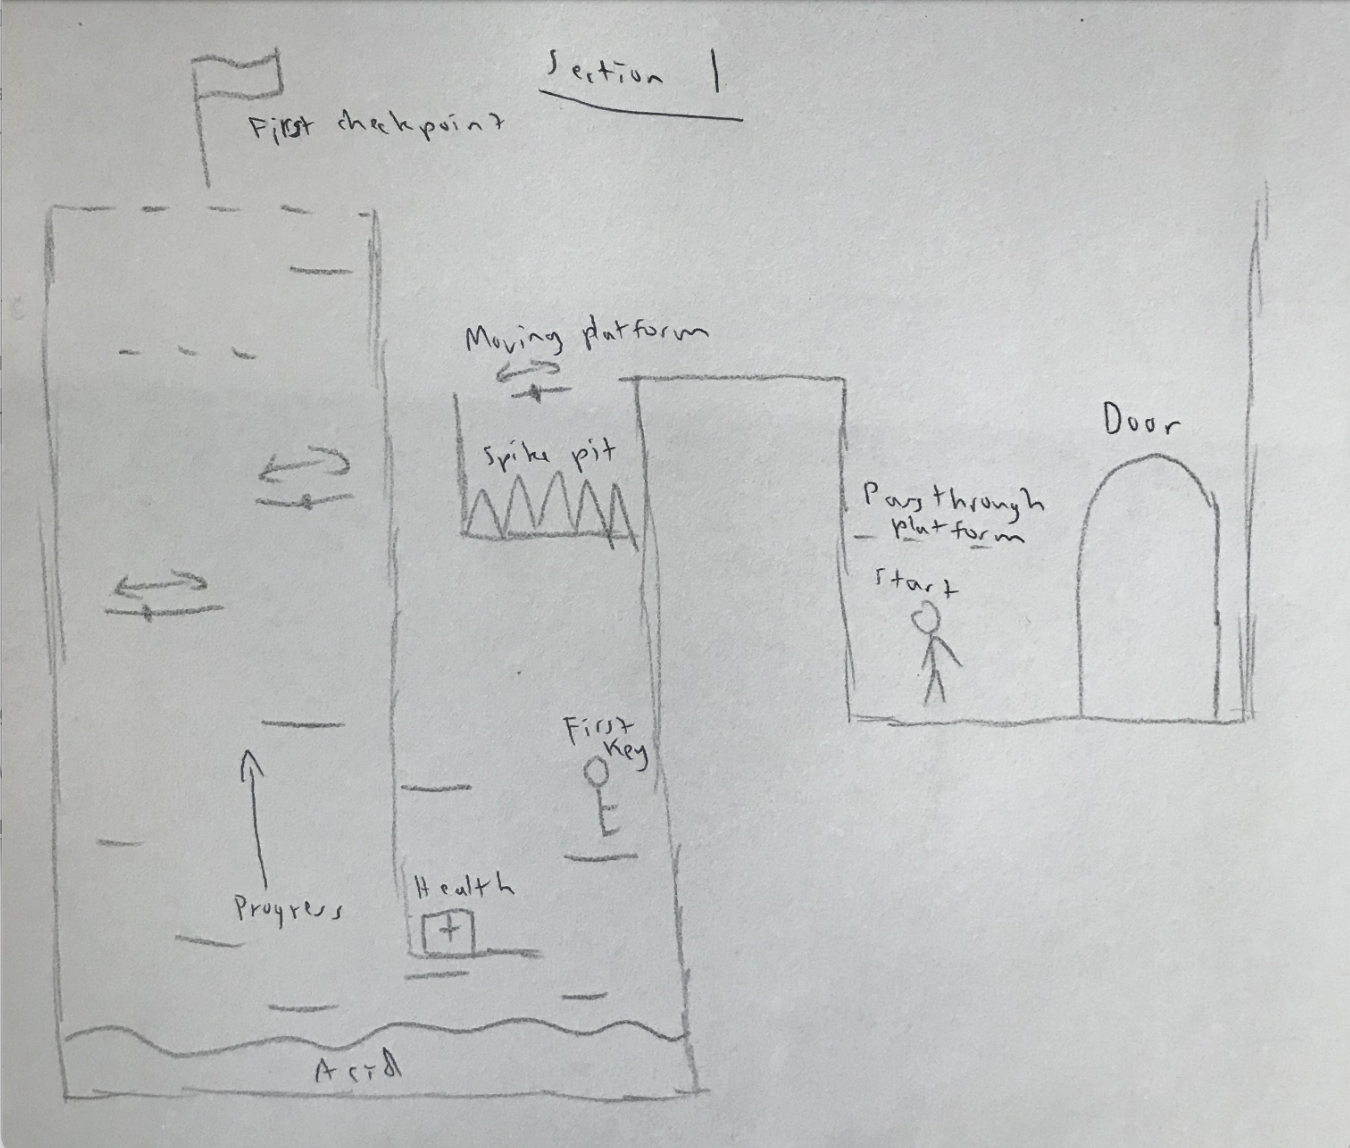 Section 1
First checkpoint
Moving platform
Spike pit
Door
Passthrough
platform
Start
First
Key
Health
+
Progress
Acid